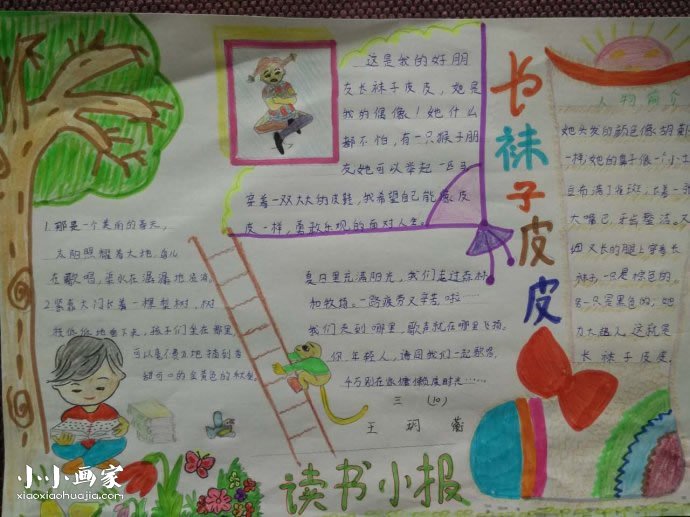 这是我的好朋
友长袜子皮皮，她是
我的偶像！她什么
都不怕，有一只猴子朋
友她可以举起一匹马
穿着一双大大的皮鞋，我希望自己能像皮
皮一样，勇敢乐观的面对人生。
长袜子皮皮
人物简介
她头发的颜色像胡萝
一样，她的鼻子像一个小土
豆布满了雀斑，长着一张
大嘴巴，牙齿整洁。
细又长的腿上穿着长
袜子一只是棕色的，
另一只是黑色的，她
力大超人，这就是
长袜子皮皮
1.那是一个美丽的春天，
太阳照耀着大地，鸟儿
在歌唱，渠水在潺潺地流淌。
2.紧靠大门长着一棵梨树，树
枝低低地垂下来，孩子们坐在那里
可以毫不费力地摘到
金黄色的
夏日里充满阳光，我们走过森林
和牧场。一路疲劳又辛苦啦……
我们走到哪里，歌声就在哪里飞扬。
你，年轻人，请同我们一起歌唱，
千万别在做懒度时光……
三 (10)
王玥
读书小报
小小画家
xiaoxiaohuajia.com